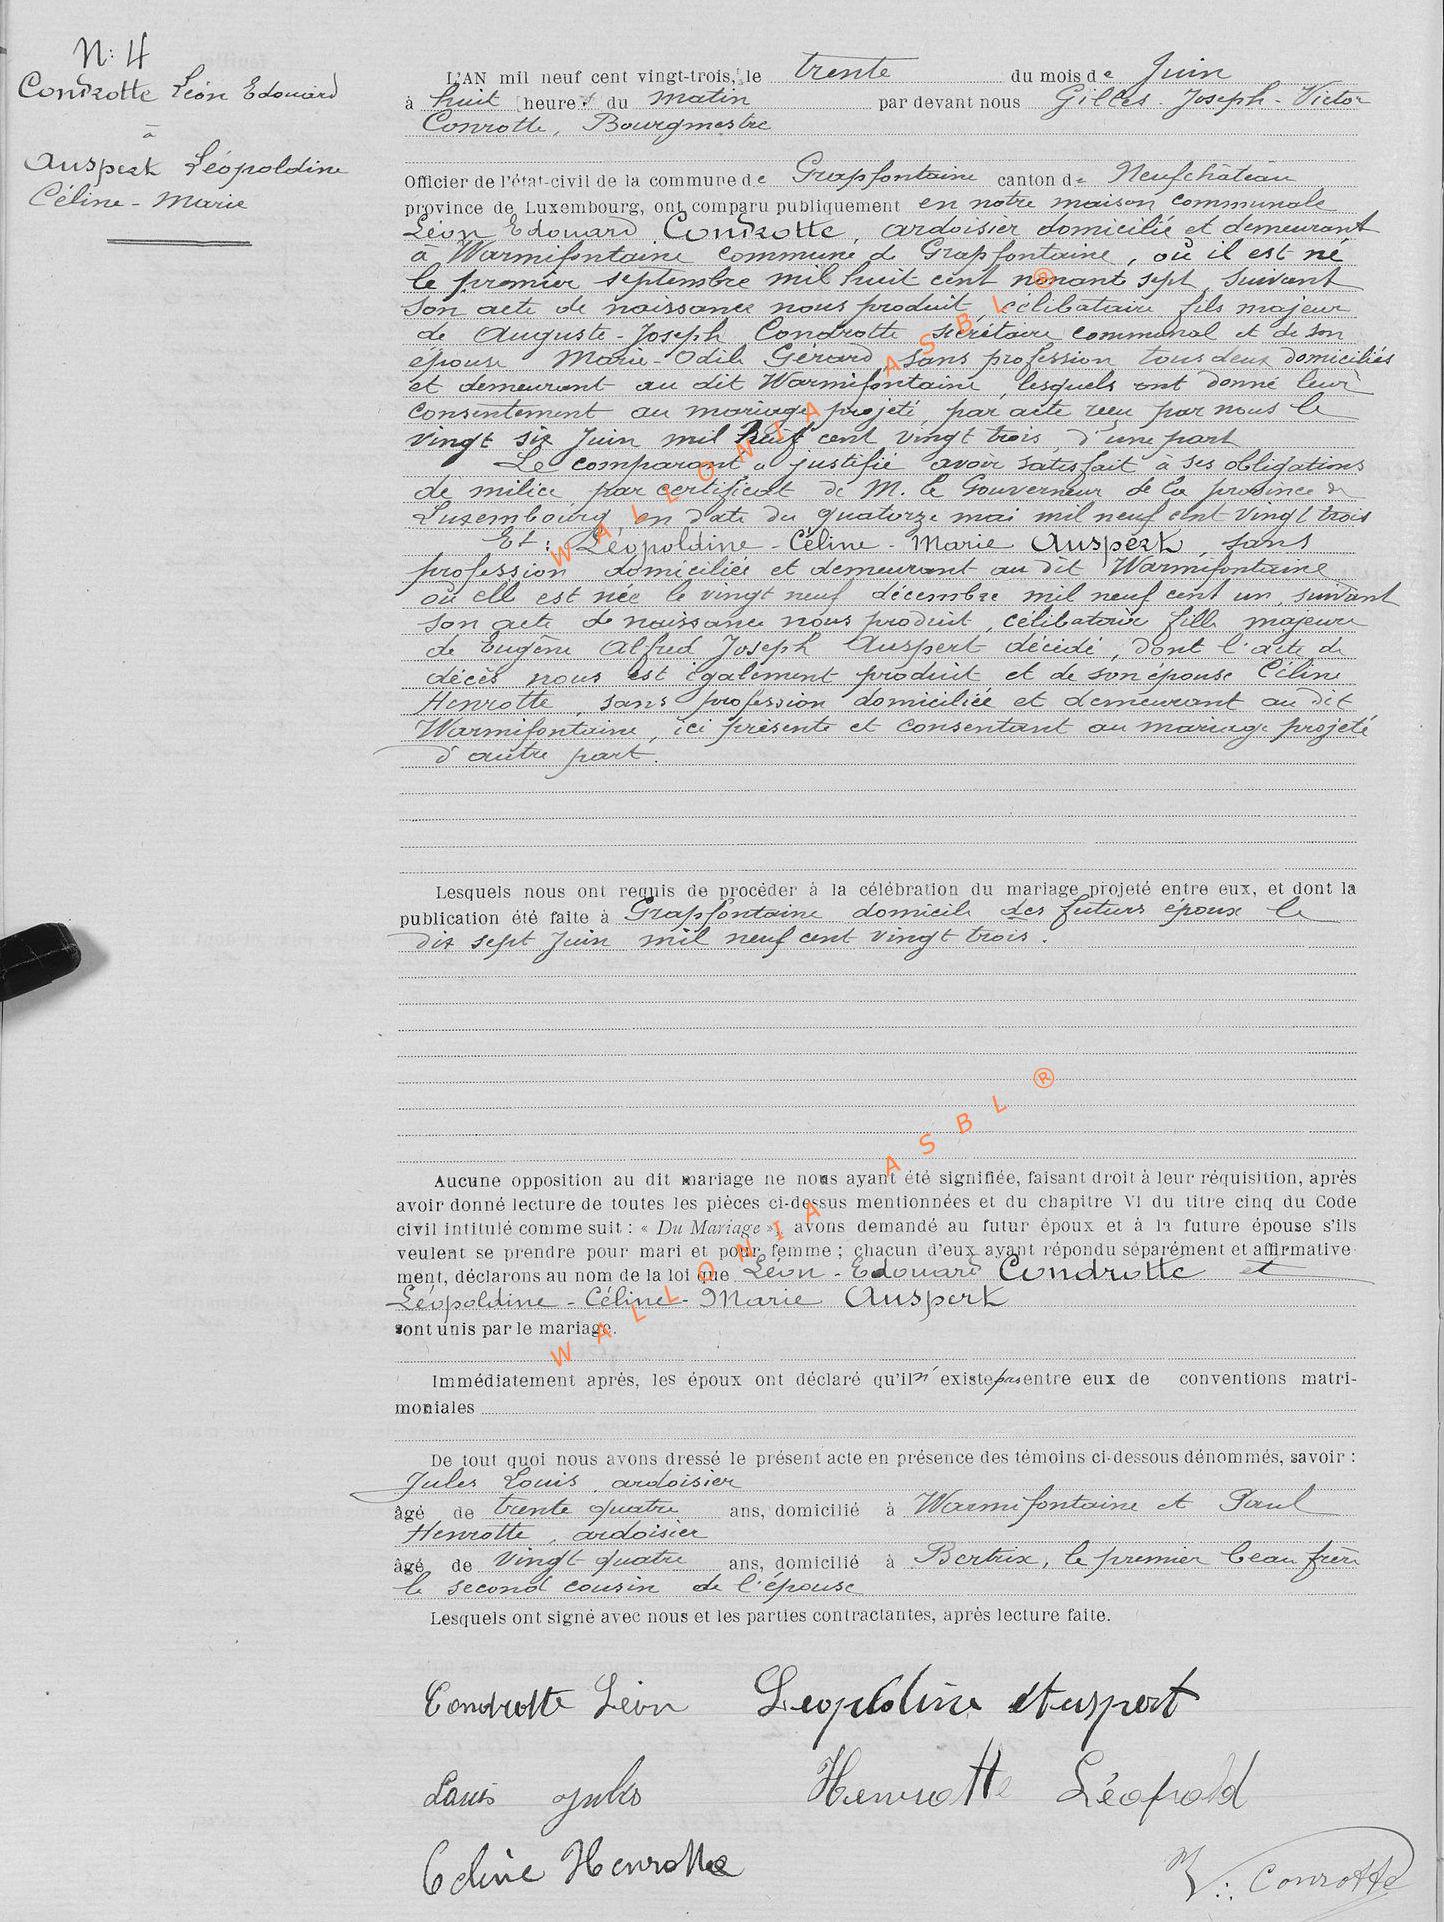 N: 4
Condrotte Léon Edouard
à
Auspert Léopoldine
Céline - Marie
L'AN mil neuf cent vingt-trois, le trente du mois de Juin
à huit heures du matin par devant nous Gilles - Joseph - Victor
Conrotte, Bourgmestre
Officier de l'état-civil de la commune de Grapfontaine canton de Neufchâteau
province de Luxembourg, ont comparu publiquement en notre maison communale
Léon Edouard Condrotte, ardoisier domicilié et demeurant
à Warmifontaine commune de Grapfontaine, où il est né
le premier septembre mil huit cent nonant sept, suivant
son acte de naissance nous produit, célibataire fils majeur
de Auguste - Joseph Condrotte secrétaire communal et de son
épouse Marie - Odile Gérard, sans profession tous deux domiciliés
et demeurant au dit Warmifontaine, lesquels ont donné leur
consentement au mariage projeté par acte reçu par nous le
vingt six Juin mil neuf cent vingt trois, d'une part
Le comparant a justifié avoir satisfait à ses obligations
de milice par certificat de M. le Gouverneur de la province de
Luxembourg, en date du quatorze mai mil neuf cent vingt trois
Et : Léopoldine - Céline - Marie Auspert, sans
profession domiciliée et demeurant au dit Warmifontaine
où elle est née le vingt neuf décembre mil neuf cent un, suivant
son acte de naissance nous produit, célibataire fille majeure
de Eugène Alfred Joseph Auspert décédé, dont l'acte de
décès nous est également produit et de son épouse Céline
Henrotte, sans profession domiciliée et demeurant au dit
Warmifontaine, ici présente et consentant au mariage projeté
d'autre part.
Lesquels nous ont requis de procéder à la célébration du mariage projeté entre eux, et dont la
publication été faite à Grapfontaine domicile des futurs époux le
dix sept Juin mil neuf cent vingt trois.
Aucune opposition au dit mariage ne nous ayant été signifiée, faisant droit à leur réquisition, après
avoir donné lecture de toutes les pièces ci-dessus mentionnées et du chapitre VI du titre cinq du Code
civil intitulé comme suit : « Du Mariage », avons demandé au futur époux et à la future épouse s'ils
veulent se prendre pour mari et pour femme ; chacun d'eux ayant répondu séparément et affirmative
ment, déclarons au nom de la loi que Léon - Edouard Condrotte et
Léopoldine - Céline - Marie Auspert
sont unis par le mariage.
Immédiatement après, les époux ont déclaré qu'il n'existe pas entre eux de conventions matri-
moniales
De tout quoi nous avons dressé le présent acte en présence des témoins ci-dessous dénommés, savoir :
Jules Louis, ardoisier
âgé de trente quatre ans, domicilié à Warmifontaine et Paul
Henrotte, ardoisier
âgé de vingt quatre ans, domicilié à Bertrix, le premier beau frère
le second cousin de l'épouse
Lesquels ont signé avec nous et les parties contractantes, après lecture faite.
Condrotte Léon Léopoldine Auspert
Louis Jules Henrotte Léopold
Céline Henrotte V. Conrotte
WALLONIA ASBL ®
WALLONIA ASBL ®